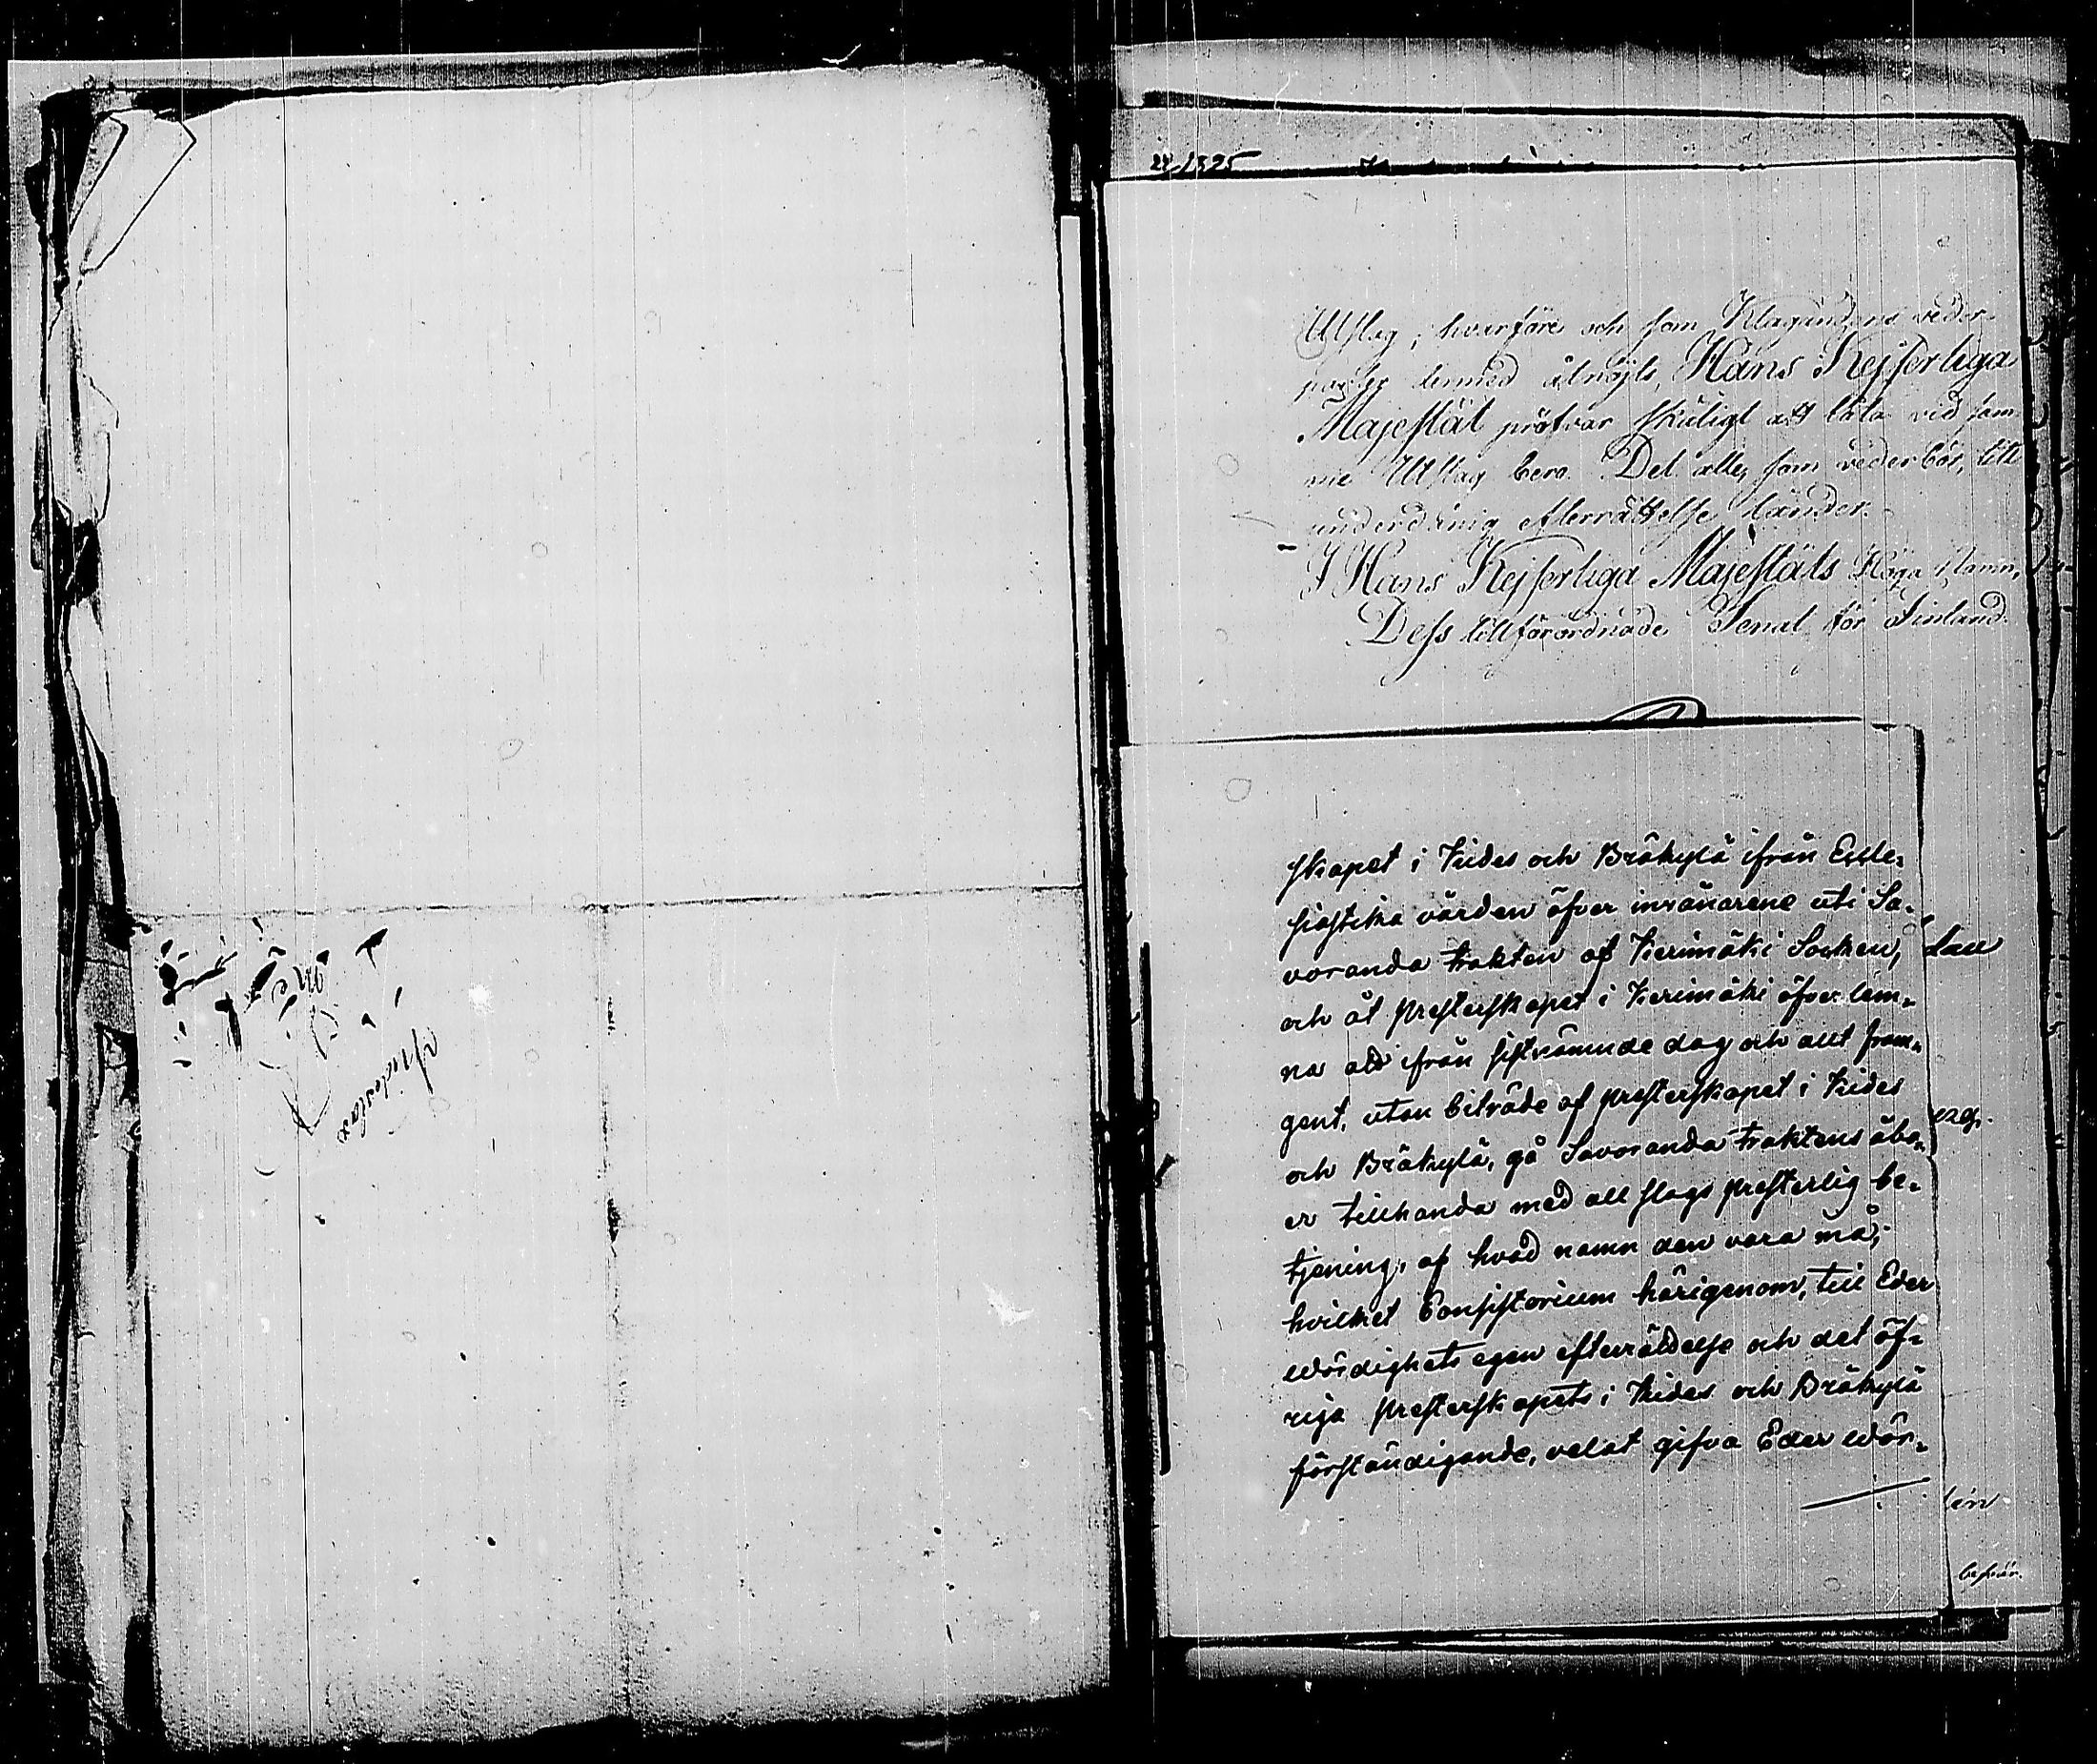 22/1825
Utslag; hvarföre och som Klagandens veder-
parter dermed åtnöjts, Hans Kejserliga
Majestät pröfvar skäligt att låta vid sam-
me Utslag bero. Det alle, som vederbör, till
underdånig efterrättelse länder.
I Hans Kejserliga Majestäts Höga Namn,
Dess tillförordnade Senat för Finland.
skapet i Kides och Bräkylä ifrån Eccle-
siastika vården öfver invånarene uti Sa-
voranda trakten af Kerimäki Socken,
och åt Presterskapet i Kerimäki öfverlem-
na att ifrån sistnämnde dag och allt fram-
gent, utan biträde af presterskapet i Kides
och Bräkylä, gå Savoranda traktens åbo-
er tillhanda med all slags presterlig be-
tjening, af hvad namn den vara må;
hvilket Consistorium härigenom, till Eder
wördighets egen efterrättelse och det öf-
riga presterskapets i Kides och Bräkylä
förständigande, velat gifva Eder wör-